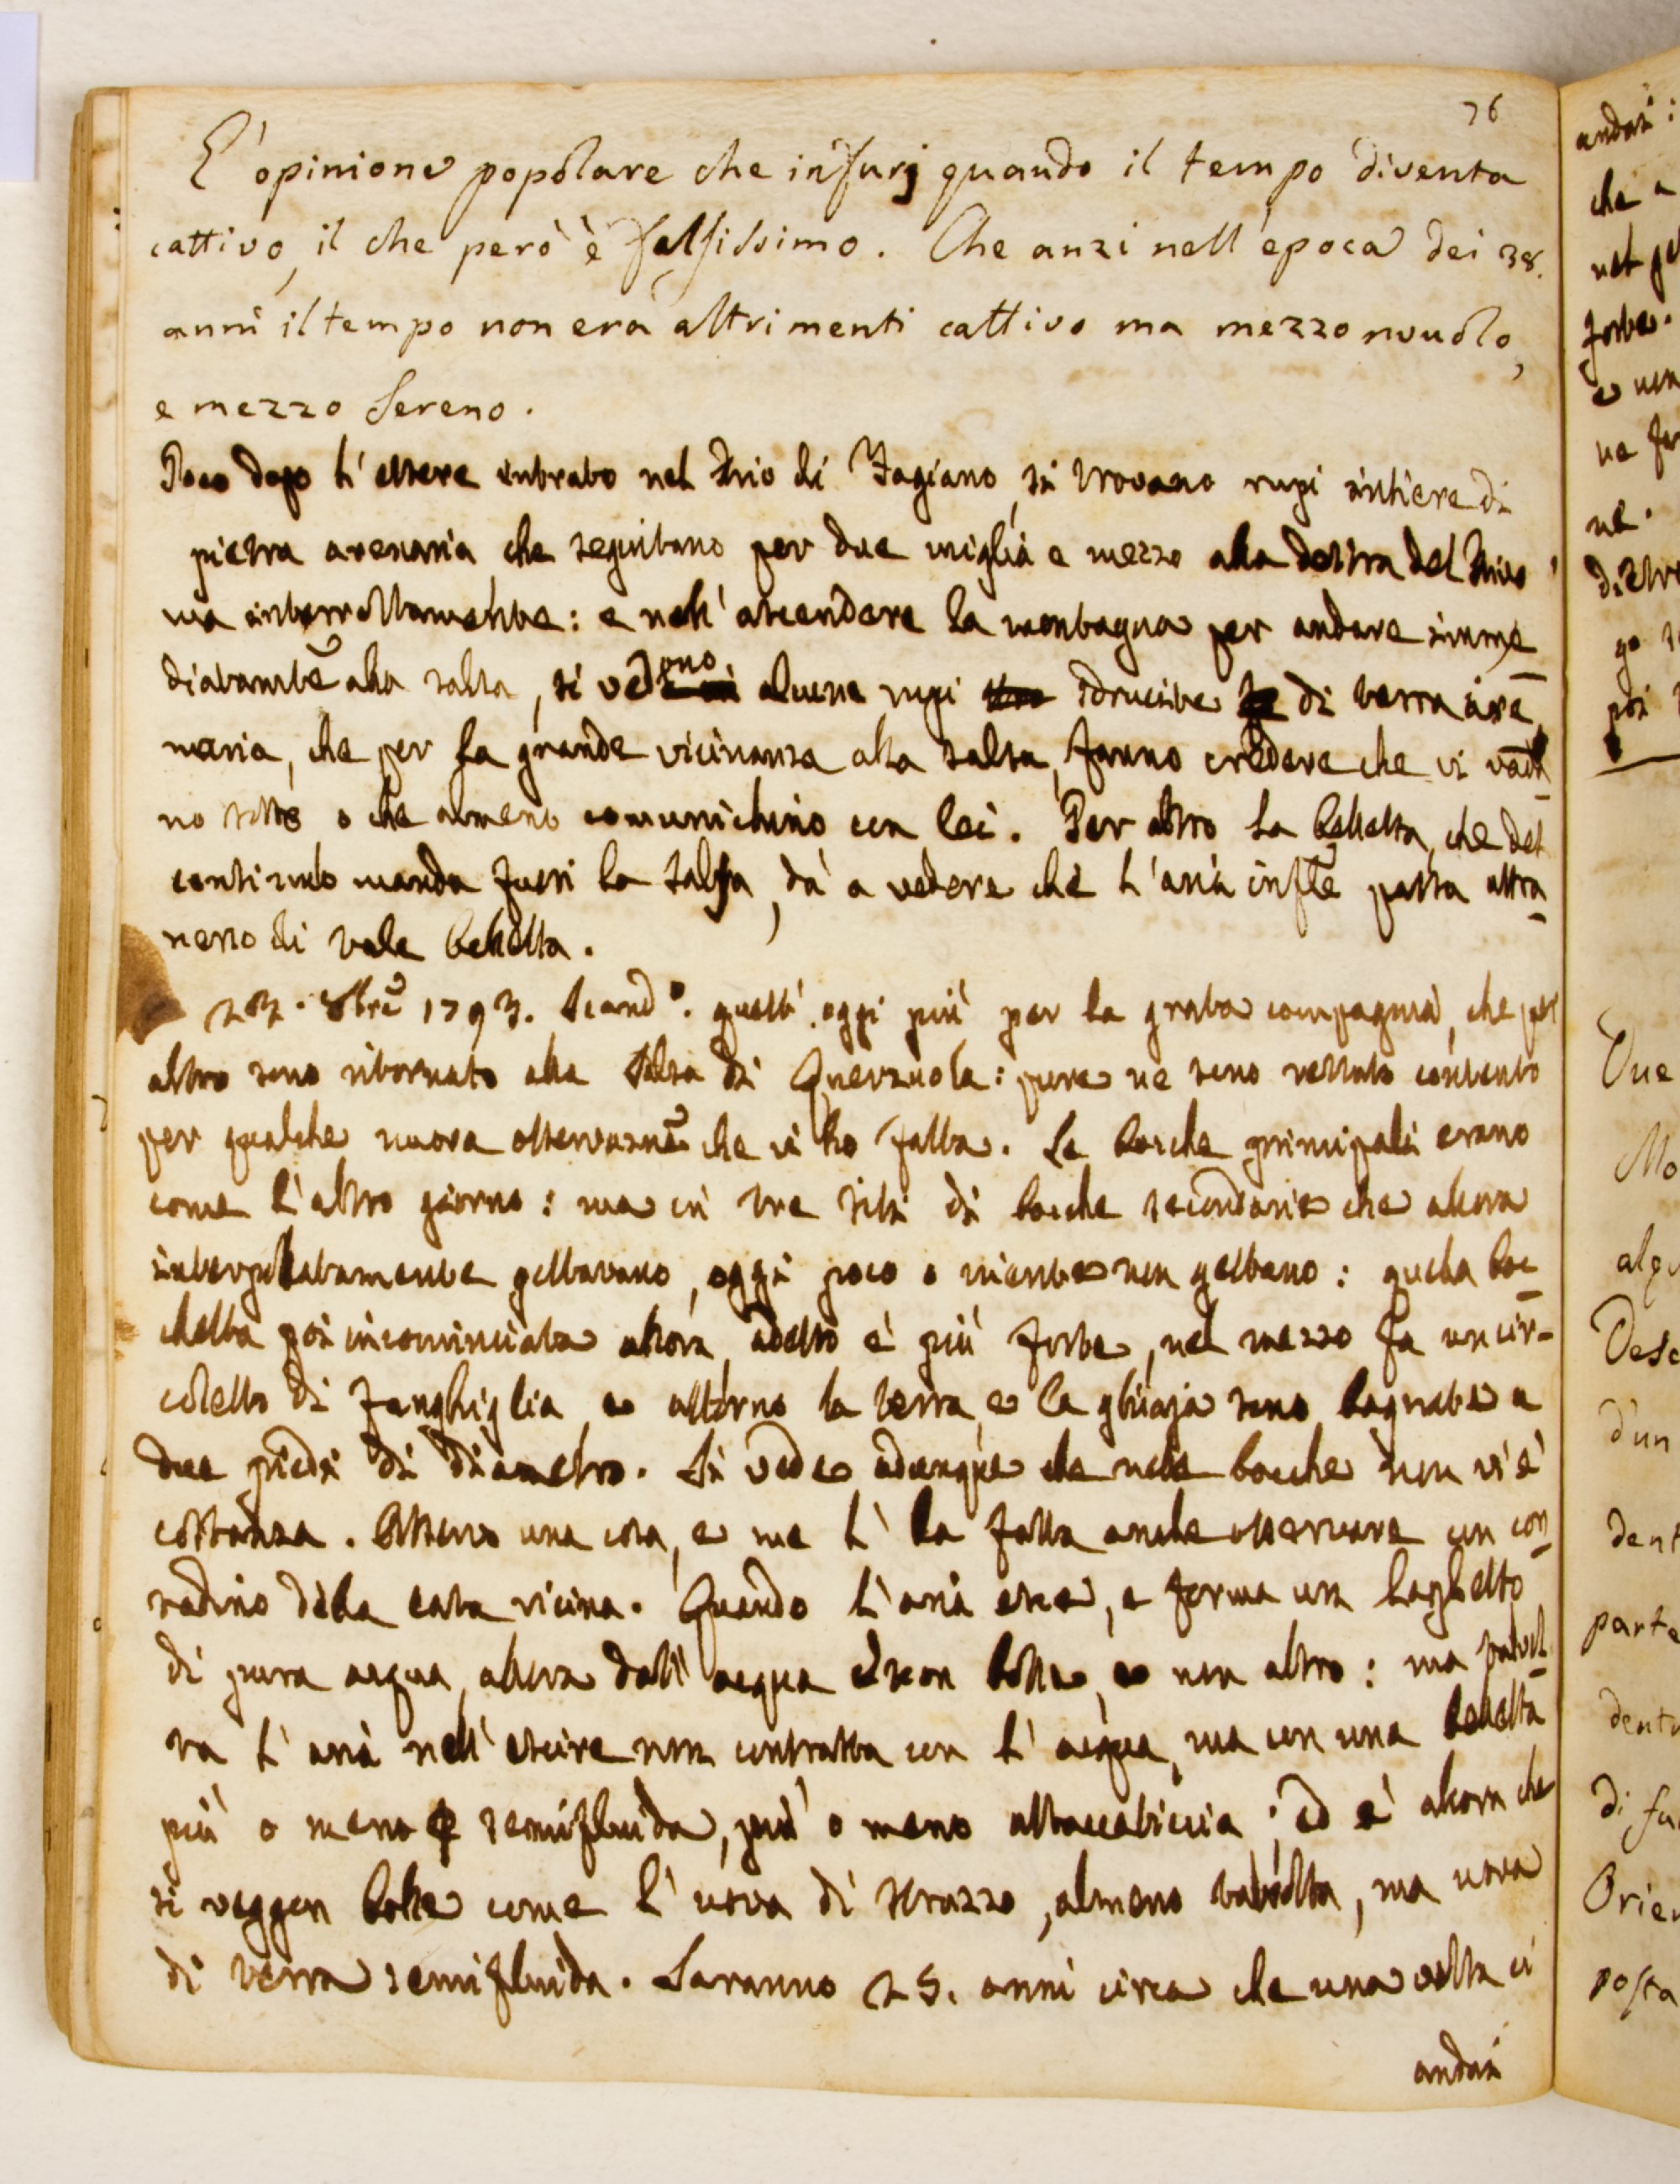 76
È opinione popolare che infurj quando il tempo diventa
cattivo, il che però è falsissimo. Che anzi nell'epoca dei 38.
anni il tempo non era altrimenti cattivo ma mezzo nuvolo,
e mezzo sereno.
Poco dopo l'essere entrato nel Rio di Fagiano, si trovano rupi intiere di
pietra arenaria che seguitano per due miglia e mezzo alla destra del Rivo
ma interrottamente: e nell'ascendere la montagna per andare imme
diatamte alla salsa, si vedono alcune rupi sdrucite di terra are
naria, che per la grande vicinanza alla salsa, fanno credere che vi vadi
no sotto o che almeno comunichino con lei. Per altro la belletta, che del
continuo manda fuori la salsa, dà a vedere che l'aria infte passa attra
verso di tale belletta.
23. 8bre 1793. Scando. quest'oggi più per la grata compagnia, che per
altro sono ritornato alla Salsa di Querzuola: pure ne sono restato contento
per qualche nuova osservazne che vi ho fatta. Le bocche principali erano
come l'altro giorno: ma in tre siti di bocche secondarie che allora
interpolatamente gettavano, oggi poco o niente non gettano: quella boc
chetta poi incominciata allora, adesso è più forte, nel mezzo fa un cir-
coletto di fanghiglia, e attorno la terra, e la ghiaja sono bagnate a
due piedi di diametro. Si vede adunque che nelle bocche non vi è
costanza. Osservo una cosa, e me l'ha fatta anche osservare un con
tadino della casa vicina. Quando l'aria esce, e forma un laghetto
di pura acqua, allora dall'acqua escon bolle, e non altro: ma talvol
ta l'aria nell'escire non contrasta con l'acqua, ma con una belletta
più o meno semifluida, più o meno attaccaticcia; ed è allora che
si veggon bolle come l'uova di struzzo, almeno talvolta, ma uova
di terra semifluida. Saranno 25. anni circa che una volta ci
andai
andai:
che a
nel
forte.
e non
ne
ne.
dietro
go
poi
Due
Mo
alqu
Desc
d'un
dent
parte
dentr
di fu
Orien
posta